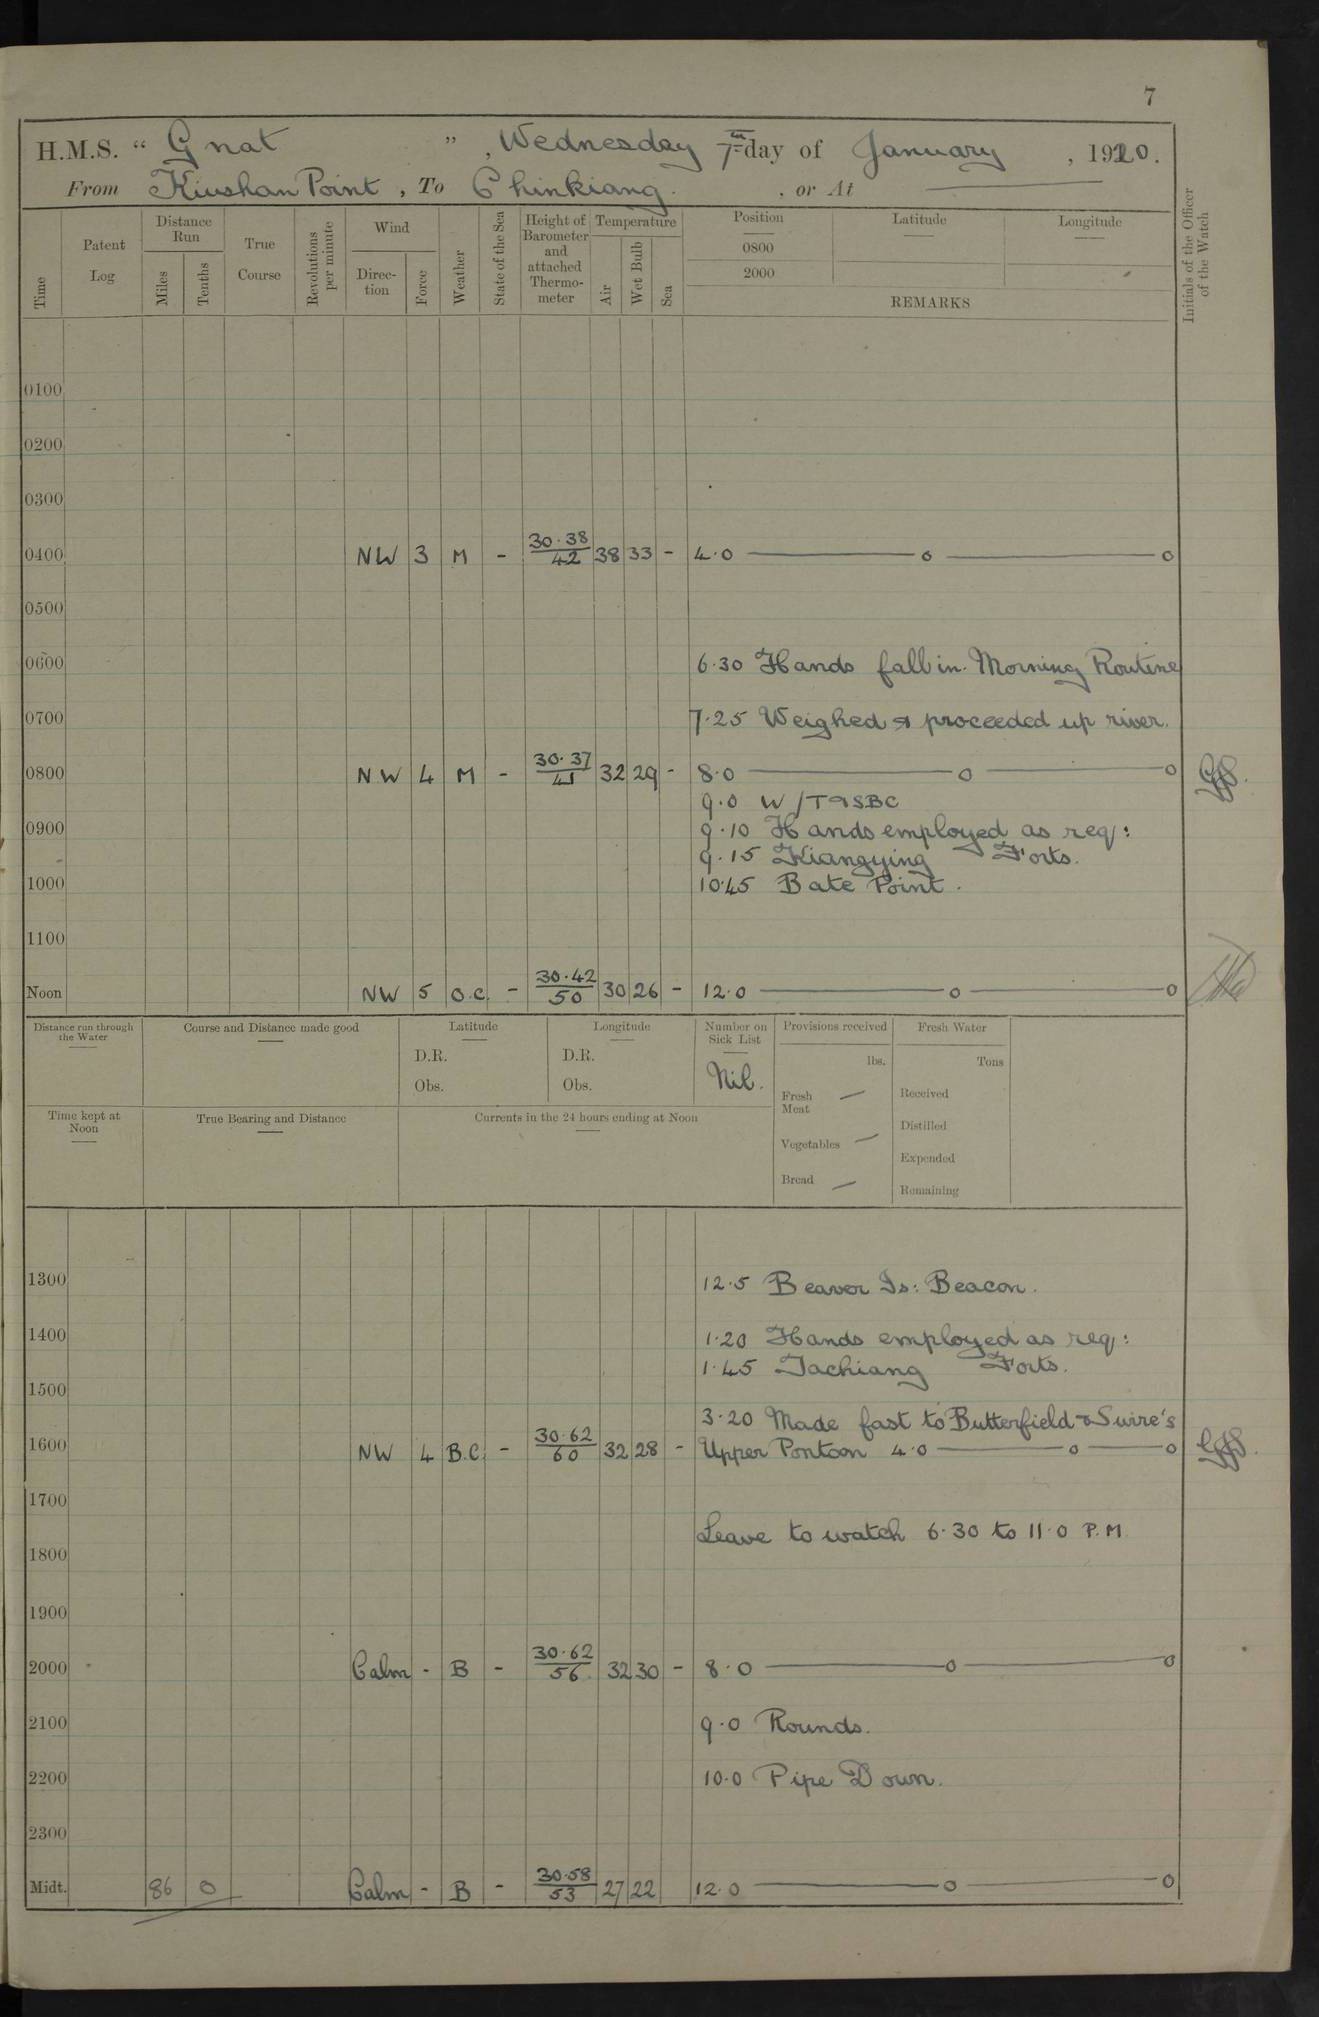 7
H.M.S. “ Gnat ” , Wednesday 7th day of January , 1920.
From Kiushan Point , To Chinkiang. , or At
Time
Patent Log
Distance Run
Miles
Tenths
True Course
Revolutions per minute
Wind
Direction
Force
Weather
State of the Sea
Height of Barometer and attached Thermometer
Temperature
Air
Wet Bulb
Sea
Position
0800
2000
Latitude
Longitude
REMARKS
Initials of the Officer of the Watch
0100
0200
0300
0400 NW 3 M - 30.38/42 38 33 - 4.0 — o — o
0500
0600 6.30 Hands fall in. Morning Routine
0700 7.25 Weighed & proceeded up river.
0800 NW 4 M - 30.37/41 32 29 - 8.0 — o — o
9.0 W/T & SBC
0900 9.10 Hands employed as req:
9.15 Kiangying Forts.
1000 10.45 Bate Point.
1100
Noon NW 5 O.C. - 30.42/50 30 26 - 12.0 — o — o
Distance run through the Water
Course and Distance made good
Latitude
D.R.
Obs.
Longitude
D.R.
Obs.
Number on Sick List
Nil.
Provisions received
lbs.
Fresh Meat —
Vegetables —
Bread —
Fresh Water
Tons
Received
Distilled
Expended
Remaining
Time kept at Noon
True Bearing and Distance
Currents in the 24 hours ending at Noon
1300 12.5 Beaver Is: Beacon.
1400 1.20 Hands employed as req:
1.45 Tachiang Forts.
1500
3.20 Made fast to Butterfield & Swire's
1600 NW 4 B.C. - 30.62/60 32 28 - Upper Pontoon 4.0 — o — o
1700
Leave to watch 6.30 to 11.0 P.M.
1800
1900
2000 Calm - B - 30.62/56 32 30 - 8.0 — o — o
2100 9.0 Rounds.
2200 10.0 Pipe Down.
2300
Midt. 86 0 Calm - B - 30.58/53 27 22 12.0 — o — o